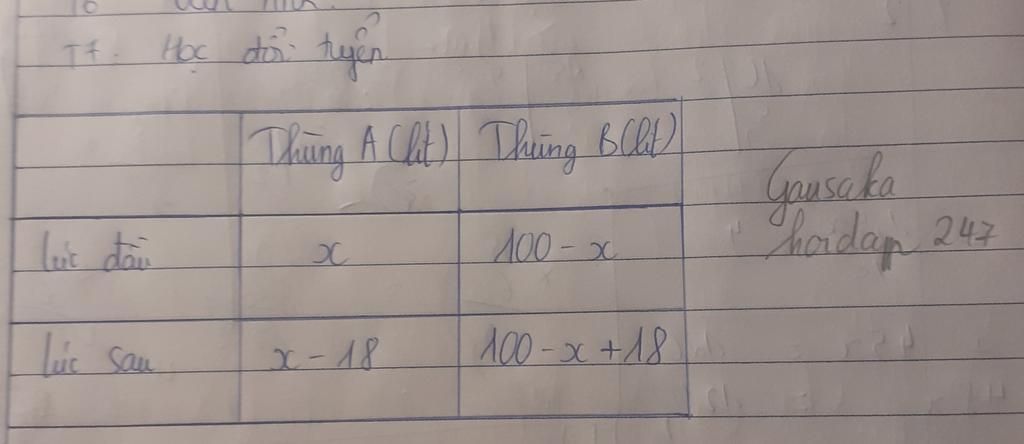 T7. Học đội tuyển
Thùng A (lít) Thùng B (lít)
lúc đầu x 100 - x
lúc sau x - 18 100 - x + 18
Gausaka
hoidap 247